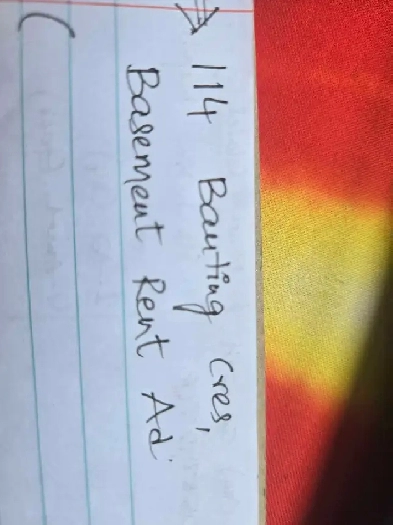 114 Banting Cres,
Basement Rent Ad